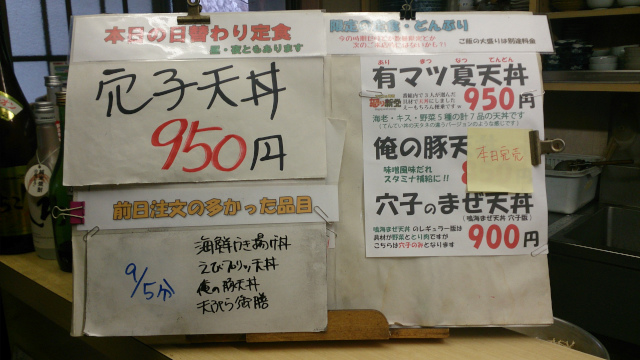 本日の日替わり定食
昼・夜ともあります
穴子天丼
950円
前日注文の多かった品目
9/5分
海鮮かき揚げ丼
えびプリッ天丼
俺の豚天丼
天ぷら御膳
ご飯の大盛りは別途料金
あり まつ なつ てんどん
有マツ夏天丼
950円
海老・キス・野菜5種の計7品の天丼です
俺の豚天
味噌風味だれ
スタミナ補給に!!
本日完売
穴子のまぜ天丼
(鳴海まぜ天丼 穴子版)
鳴海まぜ天丼 のレギュラー版は
具材が野菜ととり肉ですが
こちらは穴子のみとなります
900円